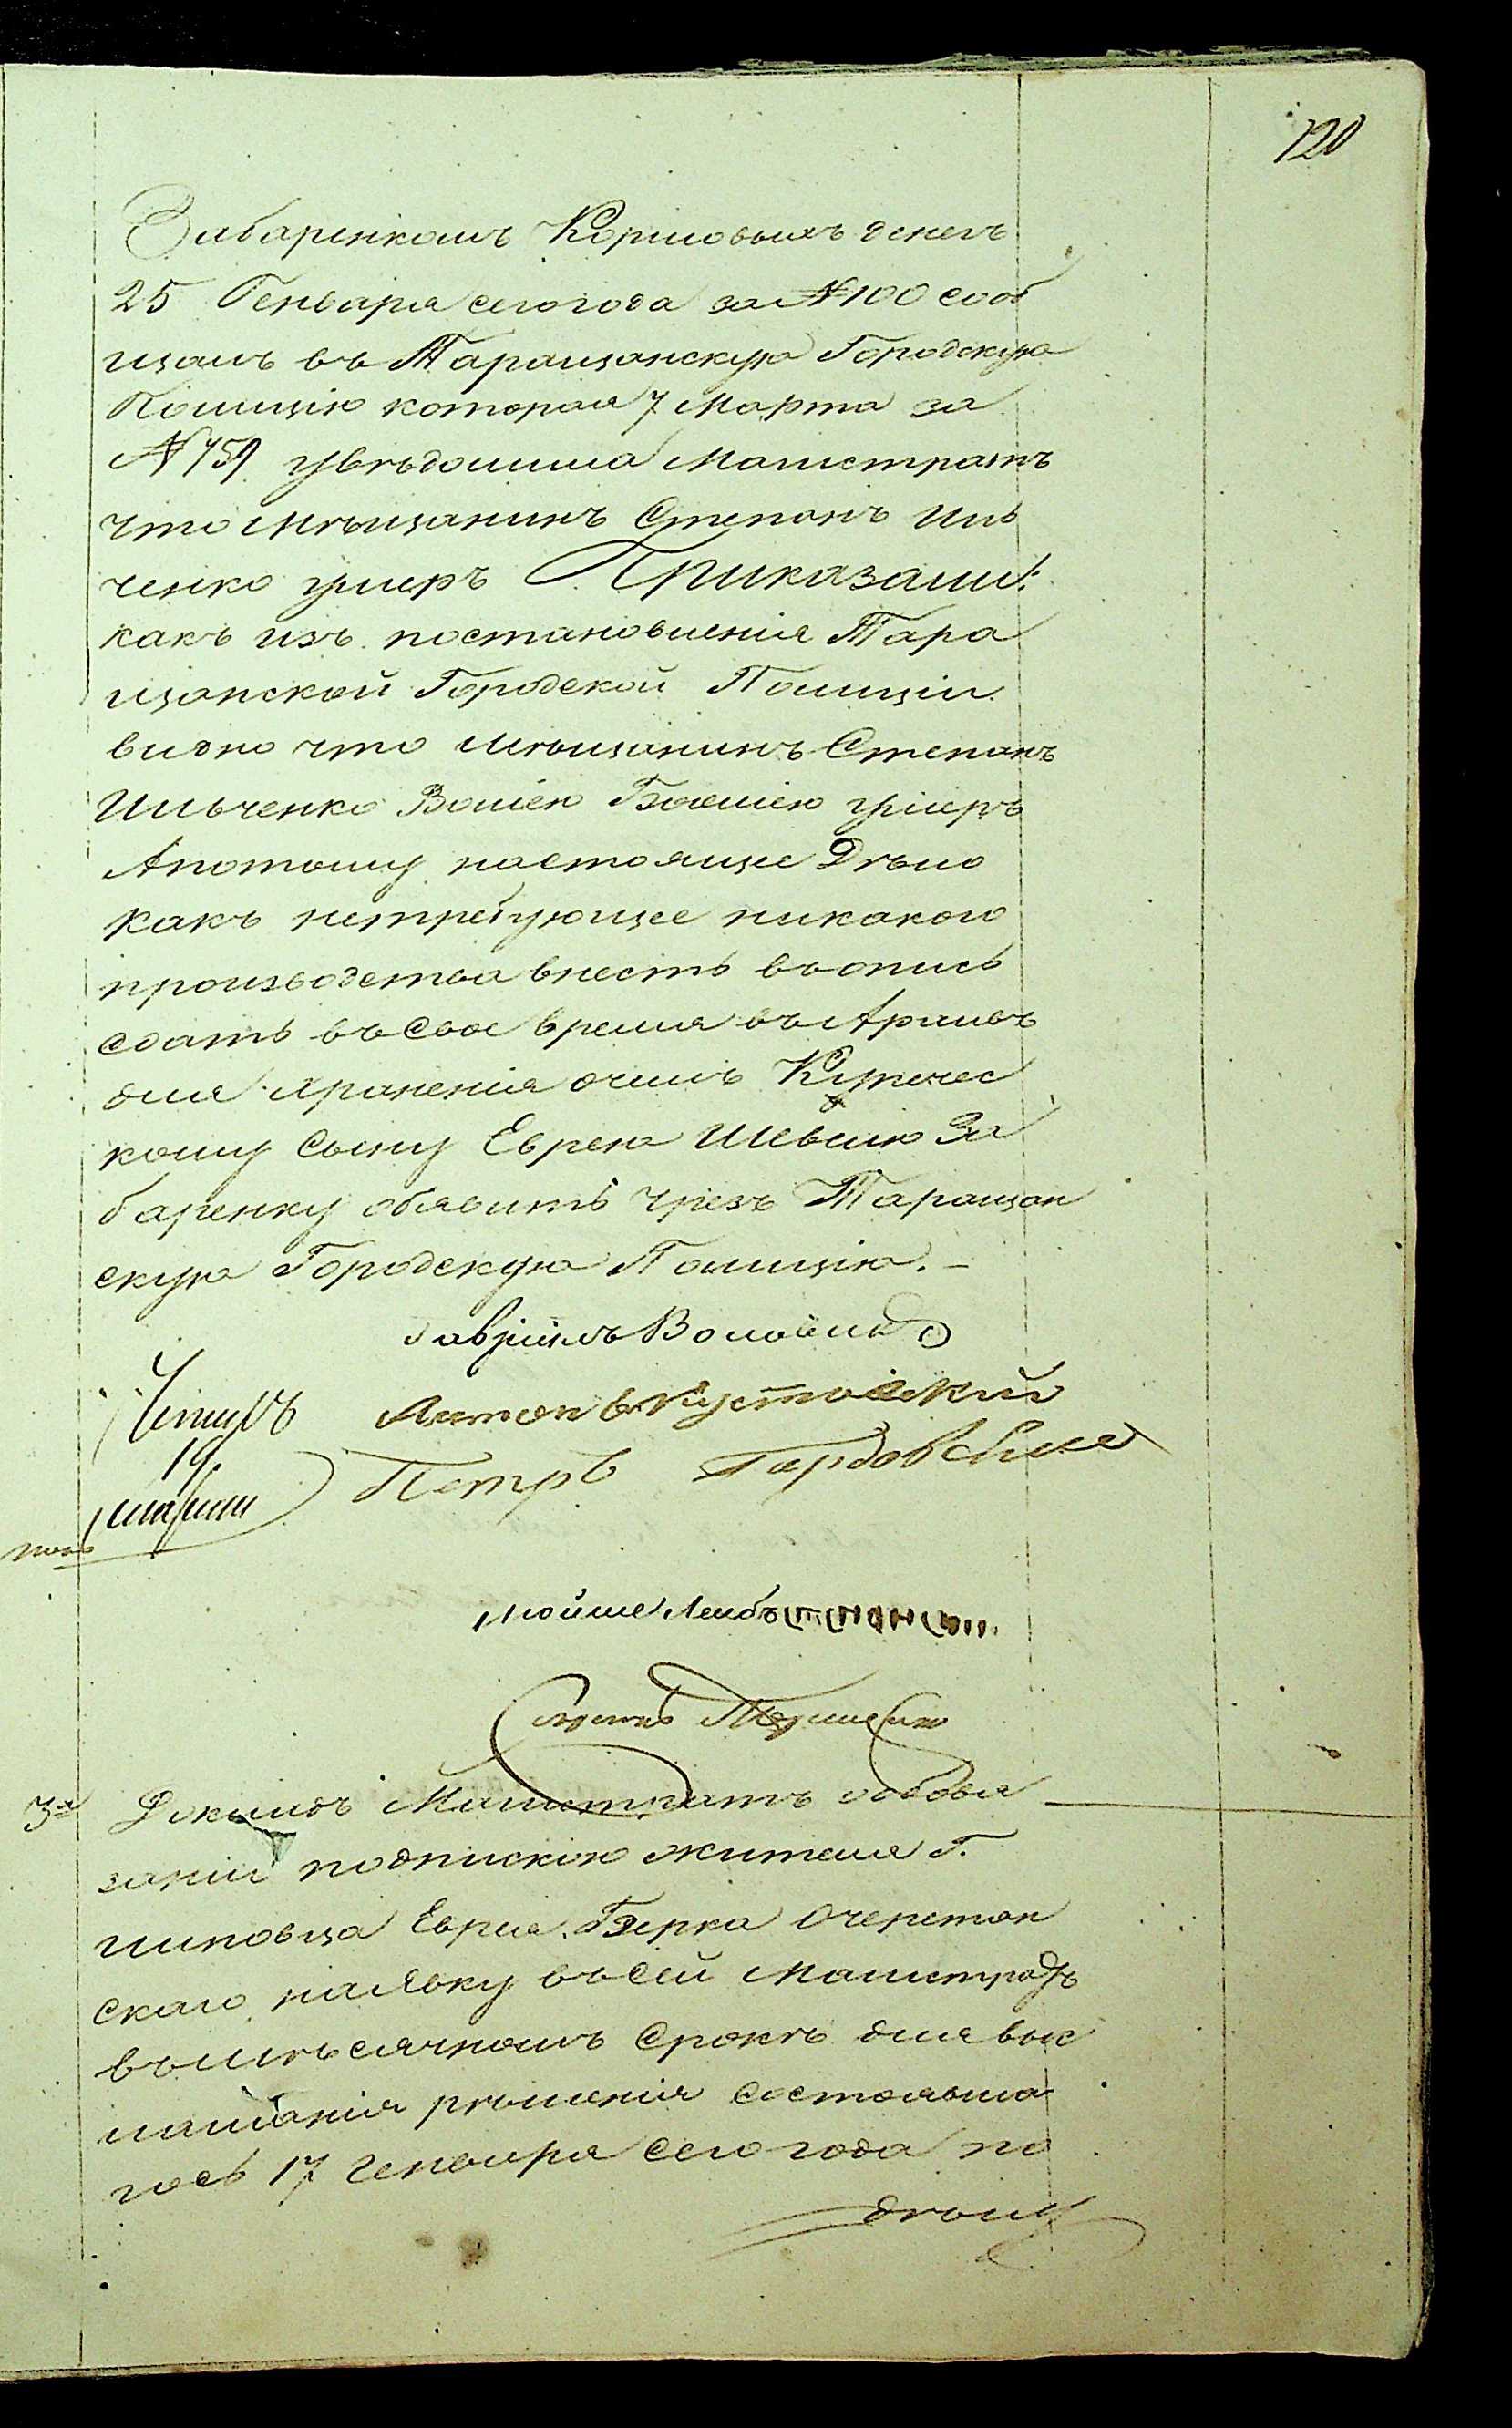 120
Забаренкомъ Кормовыхъ денегъ
25 Генваря сего года за №100 сооб
щалъ въ Таращанскую Городскую
Полицію которая 7 Марта за
№ 759 увѣдомила Магистратъ
что мѣщанинъ Степанъ Иль
ченко умеръ Приказали:
какъ изъ постановленія Тара
щанской Городской Полиціи
видно что мѣщанинъ Степанъ
Ильченко Волею Божіею умеръ
А потому настоящее Дѣло
какъ нетребующее никакого
производства внесть въ опись
сдать въ Свое время въ Архивъ
для храненія о чемъ Купечес
кому Сыну Еврею Шевелю За
баренку обявить чрезъ Таращан
скую Городскую Полицію. –
Гавріилъ
Антонъ
19
Петръ
Мойше Лейбъ
3я Докладъ Магистрата
заніи подпискою жителя Г.
Липовца Еврея Берка Очеретян
скаго на явку въ сей Магистратъ
въ мѣсячномъ Срокѣ для выс
лашанія рѣшенія Состоявша
гось 17 Генваря Сего года по
дѣлу